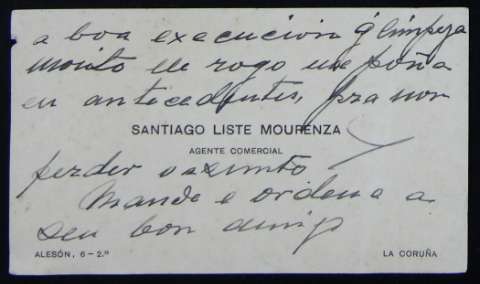 a boa execucion y limpeza
moito lle rogo me poña
en antecedentes, pra non
SANTIAGO LISTE MOURENZA
AGENTE COMERCIAL
perder o asunto
Mande e ordene a
seu bon amigo
ALESÓN, 6-2.º LA CORUÑA